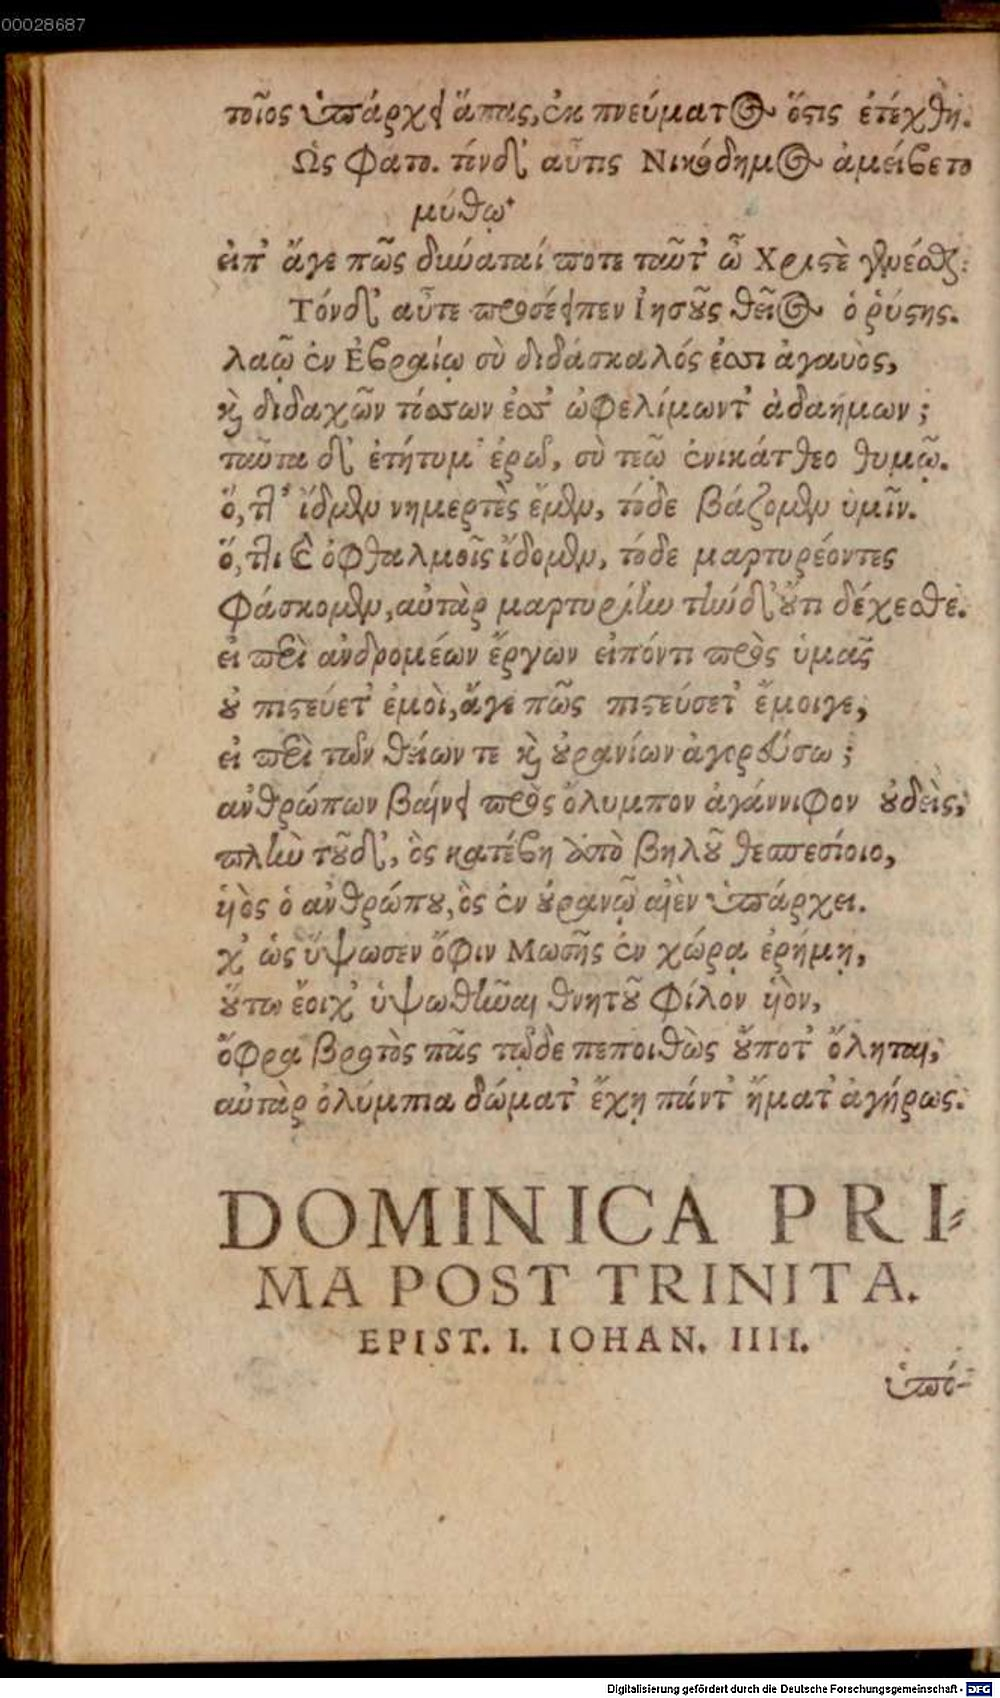 00028687
τοῖος ὑπάρχει ἅπας, ἐκ πνεύματος ὅστις ἐτέχθη.
Ὣς φατο. τόνδ' αὖτις Νικόδημος ἀμείβετο
μύθῳ·
εἰπ' ἄγε πῶς δύναταί ποτε ταῦτ' ὦ Χριστὲ γενέσθαι;
Τόνδ' αὖτε προσέειπεν Ἰησοῦς θεῖος ὁ ῥύστης.
λαῷ ἐν Ἑβραίῳ σὺ διδάσκαλός ἐσσι ἀγαυὸς,
καὶ διδαχῶν τόσσων ἐσσ' ὠφελίμωντ' ἀδαήμων;
ταῦτα δ' ἐτήτυμ' ἐρῶ, σὺ τεῷ ἐνικάτθεο θυμῷ.
ὅ, τι ἴδμεν νημερτὲς ἔμεν, τόδε βάζομεν ὑμῖν.
ὅ, τι καὶ ὀφθαλμοῖς ἴδομεν, τόδε μαρτυρέοντες
φάσκομεν, αὐτὰρ μαρτυρίην τήνδ' οὔτι δέχεσθέ.
εἰ περὶ ἀνδρομέων ἔργων εἰπόντι πρὸς ὑμᾶς
οὐ πιστεύετ' ἐμοὶ, ἄγε πῶς πιστεύσετ' ἔμοιγε,
εἰ περὶ τῶν θείων τε καὶ οὐρανίων ἀγορεύσω;
ἀνθρώπων βαίνει πρὸς ὄλυμπον ἀγάννιφον οὐδεὶς,
πλὴν τοῦδ', ὃς κατέβη ἀπὸ βηλοῦ θεσπεσίοιο,
υἱὸς ὁ ἀνθρώπου, ὃς ἐν οὐρανῷ αἰὲν ὑπάρχει.
χ' ὡς ὕψωσεν ὄφιν Μωσῆς ἐν χώρᾳ ἐρήμῃ,
οὕτω ἔοιχ' ὑψωθῆναι θνητοῦ φίλον υἱὸν,
ὄφρα βροτὸς πᾶς τῷδε πεποιθὼς οὔποτ' ὄληται,
αὐτὰρ ὀλύμπια δώματ' ἔχῃ πάντ' ἤματ' ἀγήρως.
DOMINICA PRI-
MA POST TRINITA.
EPIST. I. IOHAN. IIII.
ὑπό-
Digitalisierung gefördert durch die Deutsche Forschungsgemeinschaft - DFG